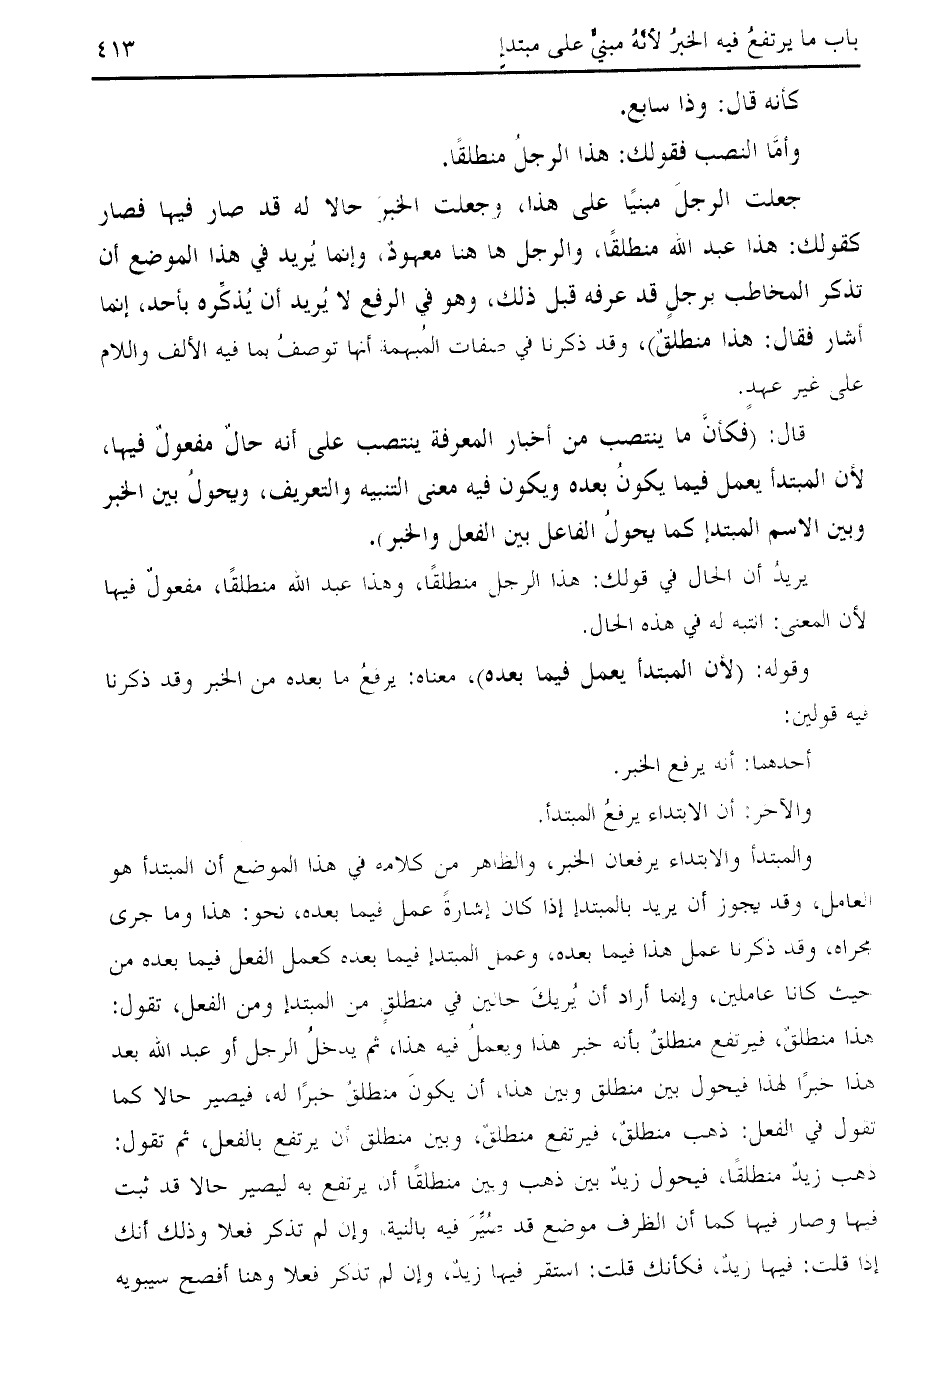 باب ما يرتفعُ فيه الخبرُ لأنَّهُ مبنيٌّ على مبتدإٍ ٤١٣
كأنه قال: وذا سابع.
وأمَّا النصب فقولك: هذا الرجلُ منطلقًا.
جعلت الرجلَ مبنيًا على هذا، وجعلت الخبرَ حالا له قد صار فيها فصار
كقولك: هذا عبد الله منطلقًا، والرجل ها هنا معهودٌ، وإنما يُريد في هذا الموضع أن
تذكر المخاطب برجلٍ قد عرفه قبل ذلك، وهو في الرفع لا يُريد أن يُذكِّره بأحد، إنما
أشار فقال: هذا منطلقٌ)، وقد ذكرنا في صفات المُبهمة أنها توصفُ بما فيه الألف واللام
على غير عهدٍ.
قال: (فكأنَّ ما ينتصب من أخبار المعرفة ينتصب على أنه حالٌ مفعولٌ فيها،
لأن المبتدأ يعمل فيما يكونُ بعده ويكون فيه معنى التنبيه والتعريف، ويحولُ بين الخبر
وبين الاسم المبتدإ كما يحولُ الفاعل بين الفعل والخبر).
يريدُ أن الحال في قولك: هذا الرجل منطلقًا، وهذا عبد الله منطلقًا، مفعولٌ فيها
لأن المعنى: انتبه له في هذه الحال.
وقوله: (لأن المبتدأ يعمل فيما بعده)، معناه: يرفعُ ما بعده من الخبر وقد ذكرنا
فيه قولين:
أحدهما: أنه يرفع الخبر.
والآخر: أن الابتداء يرفعُ المبتدأ.
والمبتدأ والابتداء يرفعان الخبر، والظاهر من كلامه في هذا الموضع أن المبتدأ هو
العامل، وقد يجوز أن يريد بالمبتدإ إذا كان إشارةً عمل فيما بعده، نحو: هذا وما جرى
مجراه، وقد ذكرنا عمل هذا فيما بعده، وعمل المبتدإ فيما بعده كعمل الفعل فيما بعده من
حيث كانا عاملين، وإنما أراد أن يُريكَ حالين في منطلقٍ من المبتدإ ومن الفعل، تقول:
هذا منطلقٌ، فيرتفع منطلقٌ بأنه خبر هذا ويعملُ فيه هذا، ثم يدخلُ الرجل أو عبد الله بعد
هذا خبرًا لهذا فيحول بين منطلق وبين هذا، أن يكونَ منطلقٌ خبرًا له، فيصير حالا كما
تقول في الفعل: ذهب منطلقٌ، فيرتفع منطلقٌ، وبين منطلق أن يرتفع بالفعل، ثم تقول:
ذهب زيدٌ منطلقًا، فيحول زيدٌ بين ذهب وبين منطلقًا أن يرتفع به ليصير حالا قد ثبت
فيها وصار فيها كما أن الظرف موضع قد صُيِّرَ فيه بالنية. وإن لم تذكر فعلا وذلك أنك
إذا قلت: فيها زيدٌ، فكأنك قلت: استقر فيها زيدٌ، وإن لم تذكر فعلا وهنا أفصح سيبويه